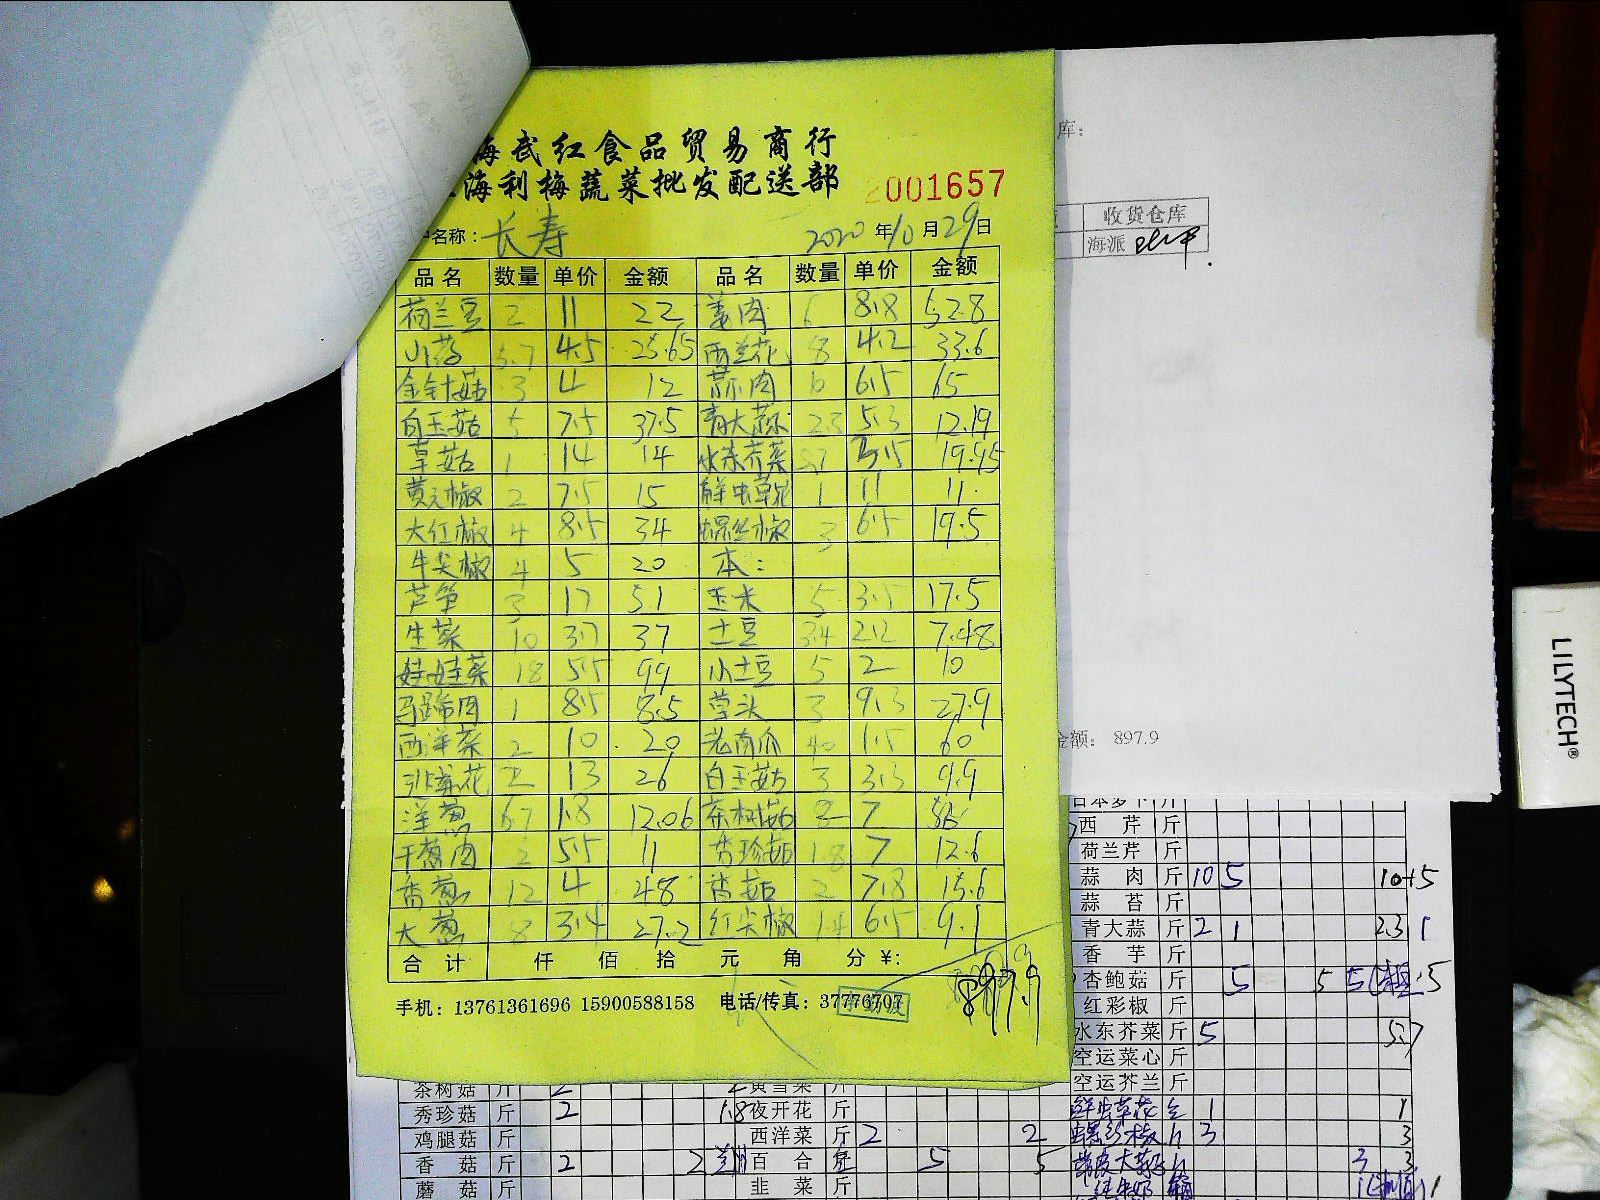 海武红食品贸易商行
海利梅蔬菜批发配送部
2001657
户名称：长寿 2020年10月29日
品名 数量 单价 金额 品名 数量 单价 金额
荷兰豆 2 11 22 姜肉 6 8.8 52.8
山药 5.7 4.5 25.65 西兰花 8 4.2 33.6
金针菇 3 4 12 蒜肉 10 6.5 65
白玉菇 5 7.5 37.5 青大蒜 2.3 5.3 12.19
草菇 1 14 14 水东芥菜 5.7 3.5 19.95
黄元椒 2 7.5 15 鲜虫草花 1 11 11
大红椒 4 8.5 34 螺丝椒 3 6.5 19.5
牛尖椒 4 5 20 本：
芦笋 3 17 51 玉米 5 3.5 17.5
生菜 10 3.7 37 土豆 3.4 2.2 7.48
娃娃菜 18 5.5 99 小土豆 5 2 10
马蹄肉 1 8.5 8.5 3 9.3 27.9
西洋菜 2 10 20 老南瓜 40 1.5 60
2 13 26 白玉菇 3 3.3 9.9
洋葱 6.7 1.8 12.06 茶树菇 8 7 56
干葱肉 2 5.5 11 秀珍菇 1.8 7 12.6
香葱 12 4 48 香菇 2 7.8 15.6
大葱 8 3.4 27.2 红尖椒 1.4 6.5 9.1
合计 仟 佰 拾 元 角 分 ¥: 897.9
手机：13761361696 15900588158 电话/传真：37776707
库：
收货仓库
海派
金额： 897.9
日本萝卜 斤
西芹 斤
荷兰芹 斤
蒜肉 斤 10 5 10+5
蒜苔 斤
青大蒜 斤 2 1 2.3 1
香芋 斤
杏鲍菇 斤 5 5 5
红彩椒 斤
水东芥菜 斤 5 5.7
空运菜心 斤
空运芥兰 斤
茶树菇 斤 2 2 黄雪菜 斤
秀珍菇 斤 2 1.8 夜开花 斤 鲜虫草花 1 1
鸡腿菇 斤 西洋菜 斤 2 2 螺丝椒 斤 3 3
香菇 斤 2 2 百合 5 5 3 3
蘑菇 斤 韭菜 斤
LILYTECH®